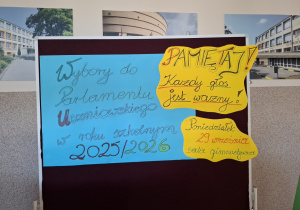 Wybory do
Parlamentu
Uczniowskiego
w roku szkolnym
2025/2026
PAMIĘTAJ!
Każdy głos
jest ważny!
Poniedziałek
29 września
sala gimnastyczna